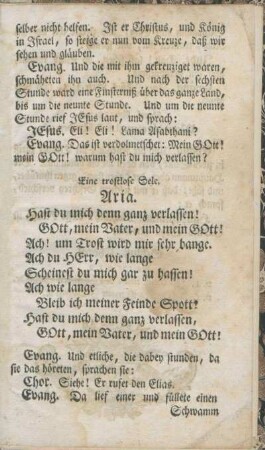 selber nicht helfen. Ist er Christus, und König
in Israel, so steige er nun vom Kreuze, daß wir
sehen und gläuben.
Evang. Und die mit ihm gekreuziget waren,
schmäheten ihn auch. Und nach der sechsten
Stunde ward eine Finsterniß über das ganze Land,
bis um die neunte Stunde. Und um die neunte
Stunde rief JEsus laut, und sprach:
JEsus. Eli! Eli! Lama Asabthani?
Evang. Das ist verdolmetschet: Mein GOtt!
mein GOtt! warum hast du mich verlassen?
Eine trostlose Sele.
Aria.
Hast du mich denn ganz verlassen!
GOtt, mein Vater, und mein GOtt!
Ach! um Trost wird mir sehr bange.
Ach du HErr, wie lange
Scheinest du mich gar zu hassen!
Ach wie lange
Bleib ich meiner Feinde Spott!
Hast du mich denn ganz verlassen,
GOtt, mein Vater, und mein GOtt!
Evang. Und etliche, die dabey stunden, da
sie das höreten, sprachen sie:
Chor. Siehe! Er rufet den Elias.
Evang. Da lief einer und füllete einen
Schwamm